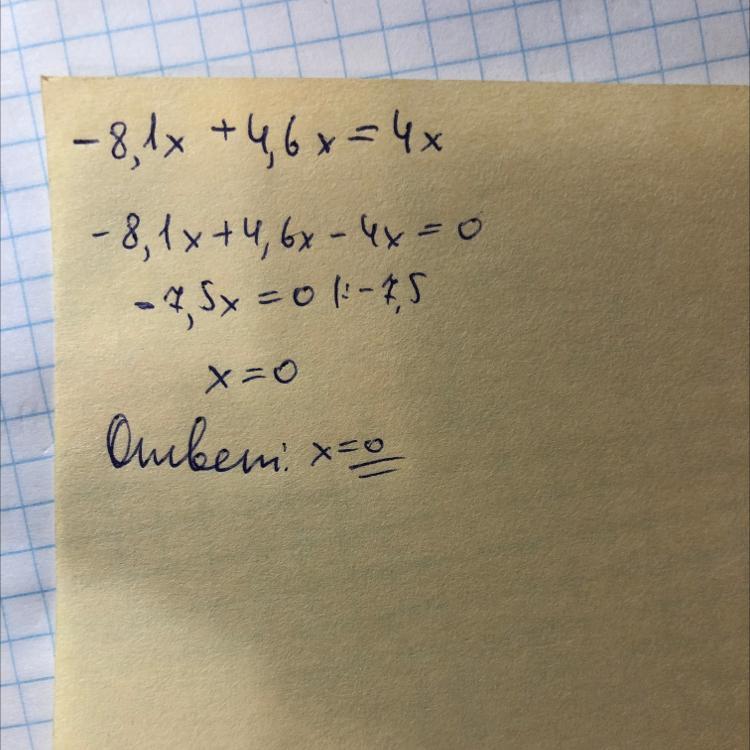 -8,1x + 4,6x = 4x
-8,1x + 4,6x - 4x = 0
-7,5x = 0 |:-7,5
x = 0
Ответ: x = 0